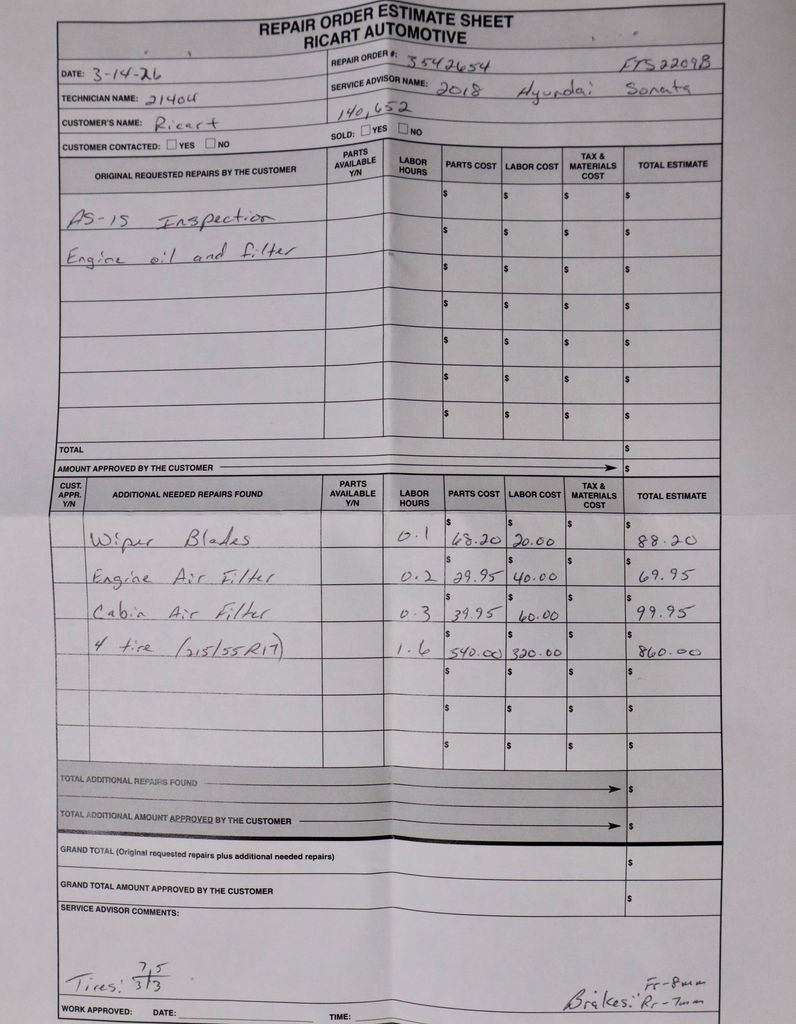 REPAIR ORDER ESTIMATE SHEET
RICART AUTOMOTIVE
DATE: 3-14-26
REPAIR ORDER #: 3542654 FTS2209B
TECHNICIAN NAME: 21404
SERVICE ADVISOR NAME: 2018 Hyundai Sonata
CUSTOMER'S NAME: Ricart
140,652
CUSTOMER CONTACTED: ☐ YES ☐ NO
SOLD: ☐ YES ☐ NO
ORIGINAL REQUESTED REPAIRS BY THE CUSTOMER PARTS AVAILABLE Y/N LABOR HOURS PARTS COST LABOR COST TAX & MATERIALS COST TOTAL ESTIMATE
$ $ $ $
AS-15 Inspection $ $ $ $
Engine oil and filter $ $ $ $
$ $ $ $
$ $ $ $
$ $ $ $
$ $ $ $
TOTAL $
AMOUNT APPROVED BY THE CUSTOMER $
CUST. APPR. Y/N ADDITIONAL NEEDED REPAIRS FOUND PARTS AVAILABLE Y/N LABOR HOURS PARTS COST LABOR COST TAX & MATERIALS COST TOTAL ESTIMATE
Wiper Blades 0.1 $ 68.20 $ 20.00 $ $ 88.20
Engine Air Filter 0.2 $ 29.95 $ 40.00 $ $ 69.95
Cabin Air Filter 0.3 $ 39.95 $ 60.00 $ $ 99.95
4 tire (215/55R17) 1.6 $ 540.00 $ 320.00 $ $ 860.00
$ $ $ $
$ $ $ $
$ $ $ $
TOTAL ADDITIONAL REPAIRS FOUND $
TOTAL ADDITIONAL AMOUNT APPROVED BY THE CUSTOMER $
GRAND TOTAL (Original requested repairs plus additional needed repairs) $
GRAND TOTAL AMOUNT APPROVED BY THE CUSTOMER $
SERVICE ADVISOR COMMENTS:
7 5
Tires: 3 3
Fr-8mm
Brakes: Rr-7mm
WORK APPROVED: DATE: TIME: